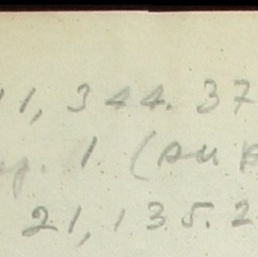 11, 344. 37
p. 1 (au
21, 135. 2